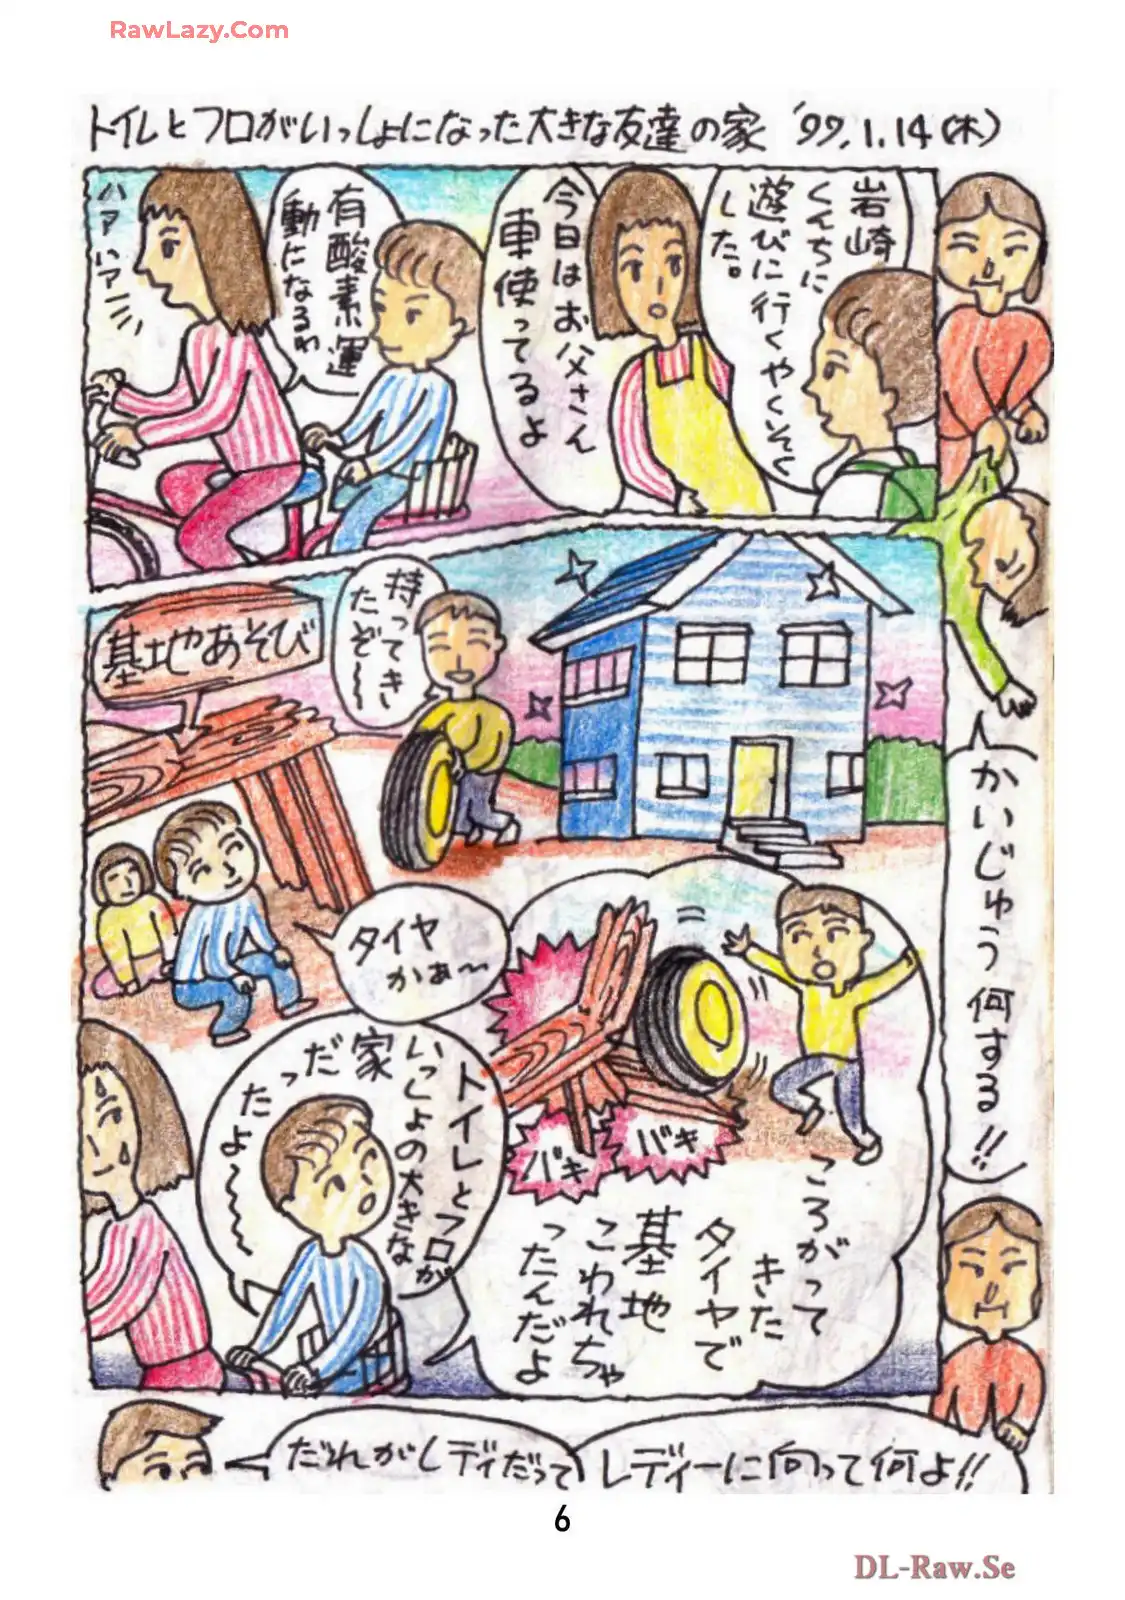 RawLazy.Com
トイレとフロがいっしょになった大きな友達の家 '99.1.14(木)
岩崎
くんちに
遊びに行くやくそく
した。
今日はお父さん
車使ってるよ
有酸素運
動になるわ
ハァハァ
持ってき
たぞ〜
基地あそび
タイヤ
かぁ〜
ころがって
きた
タイヤで
基地
こわれちゃ
ったんだよ
バキ
バキ
トイレとフロが
いっしょの大きな
家
だったよ〜
かいじゅう何する!!
レディーに向って何よ!!
だれがレディだって
6
DL-Raw.Se